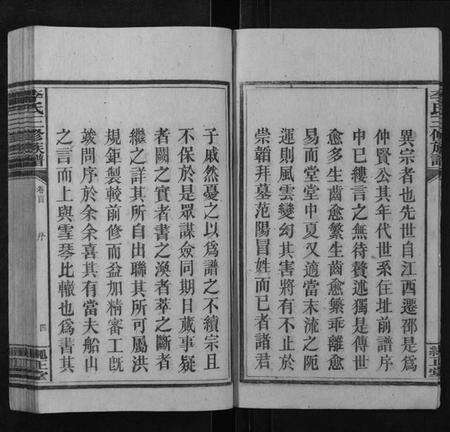 異宗者也先世自江西遷邵是爲
仲賢公其年代世系住址前譜序
中已縷言之無待贅述獨是傳世
愈多生齒愈繁生齒愈繁乖離愈
易而堂堂中夏又適當末流之阨
運則風雲變幻其害將有不止於
崇韜拜墓范陽冒姓而已者諸君
子戚然憂之以爲譜之不續宗且
不保於是眾謀僉同期日蕆事疑
者闕之實者書之渙者萃之斷者
繼之詳其所自出聯其所可屬洪
規鉅製較前修而益加精審工既
竣問序於余余喜其有當夫船山
之言而上與雪琴比轍也爲書其
李氏三修族譜
卷首
序
四